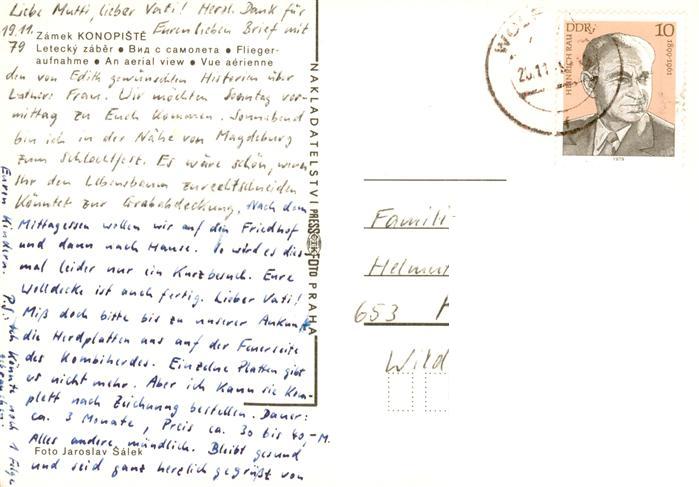 Liebe Mutti, lieber Vati! Herzl. Dank für
19.11. Euren lieben Brief mit
79 Zámek KONOPIŠTĚ
Letecký záběr • Вид с самолета • Flieger-
aufnahme • An aerial view • Vue aérienne
den von Edith gewünschten Historien über
Frau. Wir möchten Sonntag vor-
mittag zu Euch kommen. Sonnabend
bin ich in der Nähe von Magdeburg
zum Schlachtfest. Es wäre schön, wenn
Ihr den Lebensbaum zurechtschneiden
könntet zur Grababdeckung. Nach dem
Mittagessen wollen wir auf den Friedhof
und dann nach Hause. So wird es dies-
mal leider nur ein Kurzbesuch. Eure
Wolldecke ist auch fertig. Lieber Vati!
Miß doch bitte bis zu unserer Ankunft
die Herdplatten aus auf der Feuerseite
des Kombiherdes. Einzelne Platten gibt
es nicht mehr. Aber ich kann sie kom-
plett nach Zeichnung bestellen. Dauer:
ca. 3 Monate, Preis ca. 30 bis 40,-M.
Alles andere mündlich. Bleibt gesund
Foto Jaroslav Šálek
und seid ganz herzlich gegrüßt von
Euren Kindern. P.S. Ich könnte noch 1 Folge
NAKLADATELSTVÍ PRESSFOTO PRAHA
DDR 10
HEINRICH RAU 1899-1961
1979
Famili
Helmut
653 H
Wild